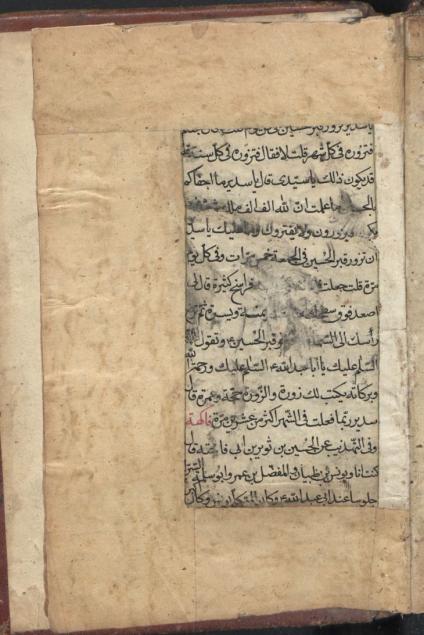 يا سدير تزور قبر الحسين في كل يوم قلت
فتزوره في كل شهر قلت لا فقال فتزوره في كل سنة قلت
قد يكون ذلك يا سيدي قال يا سدير ما اجفاكم
اما علمت ان لله الف الف ملك
يبكون ويزورون ولا يفترون وما عليك يا سدير
ان تزور قبر الحسين في الجمعة خمس مرات وفي كل يوم
مرة قلت جعلت فراسخ كثيرة قال لي
اصعد فوق سطحك يمنة ويسرة ثم ترفع
رأسك الى السماء نحو قبر الحسين ع وتقول
السلام عليك يا ابا عبد الله ع السلام عليك ورحمة الله
وبركاته يكتب لك زورة والزورة حجة وعمرة قال
سدير ربما فعلت في الشهر اكثر من عشرين مرة
وفي التهذيب عن الحسين بن ثوير بن ابي فاختة قال
كنت انا ويونس بن ظبيان والمفضل بن عمر وابو سلمة
جلوسا عند ابي عبد الله ع وكان المتكلم يونس وكان